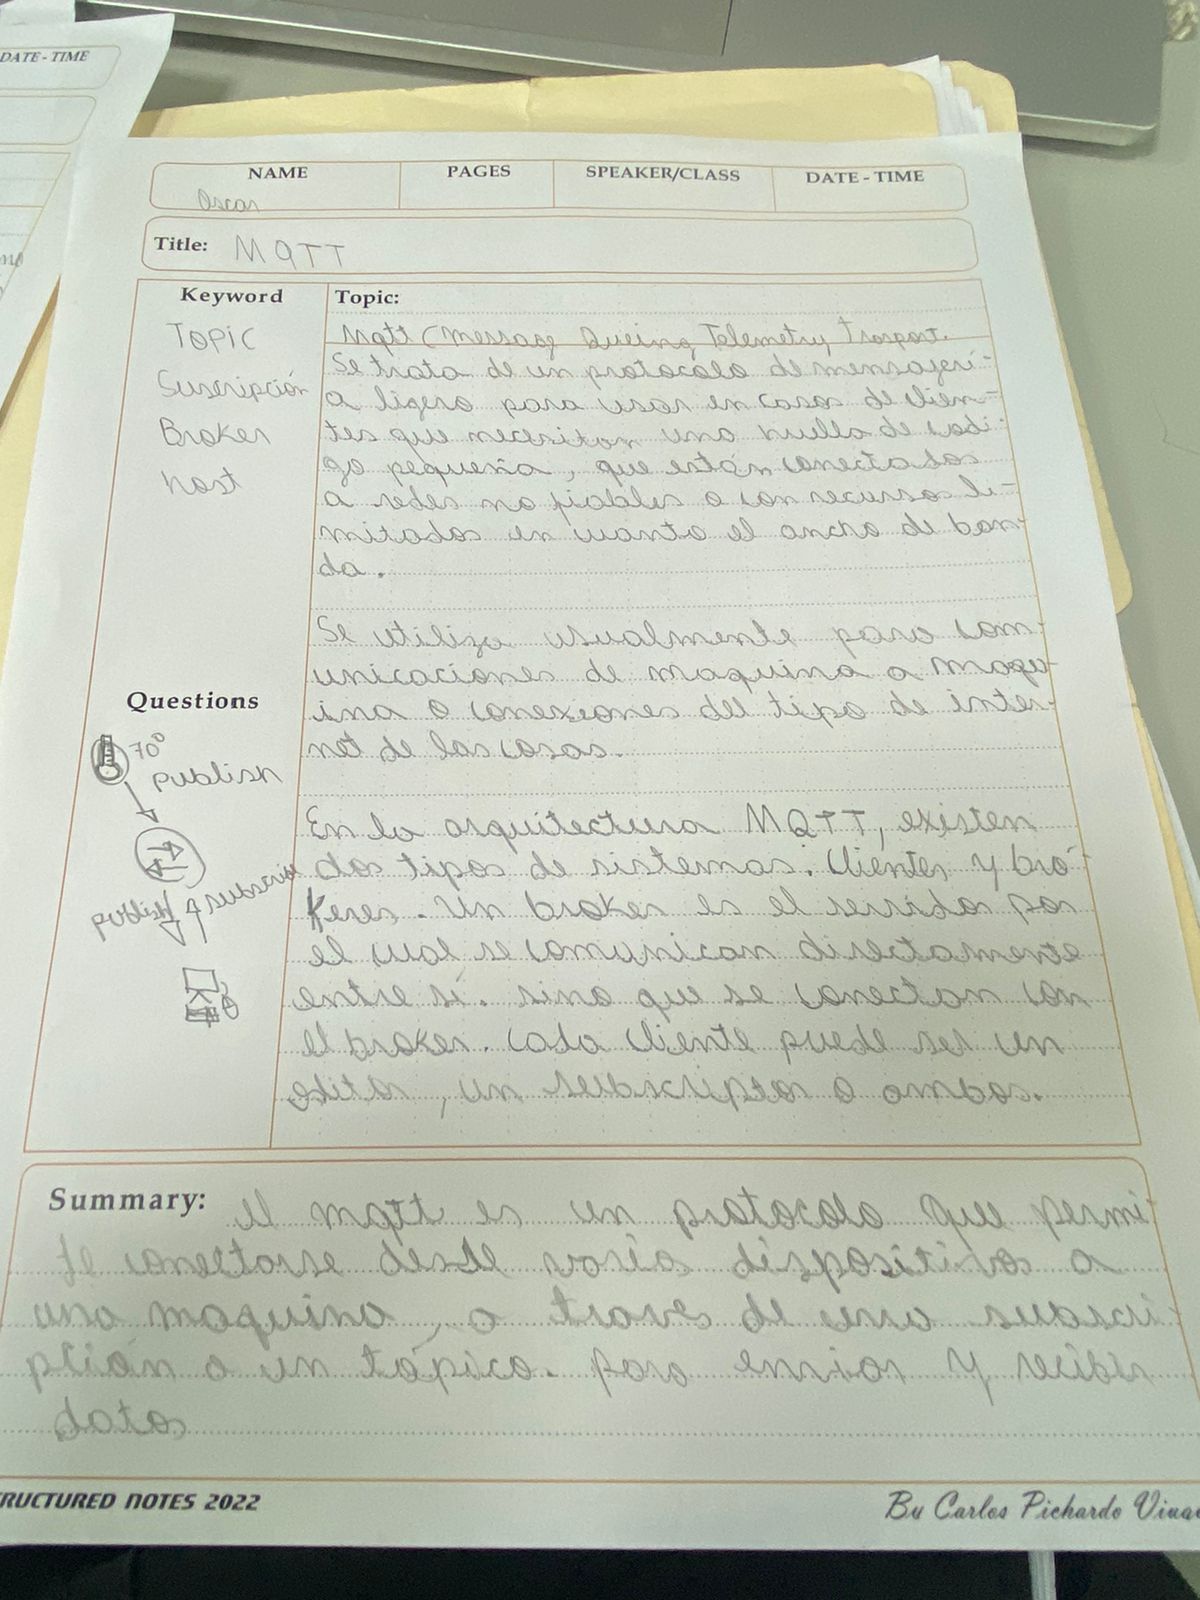 DATE - TIME
NAME
PAGES
SPEAKER/CLASS
DATE - TIME
Oscar
Title: MQTT
Keyword
Topic
Suscripción
Broker
host
Questions
70°
publish
publish
Topic:
Mqtt (Message Queing Telemetry Trasport.
Se trata de un protocolo de mensajeri-
a ligero para usar en casos de clien-
tes que necesitan una huella de codi-
go pequeña, que están conectados
a redes no fiables o con recursos li-
mitados en cuanto el ancho de ban-
da.
Se utiliza usualmente para com-
unicaciones de maquina a maqu-
ina o conexiones del tipo de inter-
net de las cosas.
En la arquitectura MQTT, existen
dos tipos de sistemas. Clientes y bro-
keres. Un broker es el servidor por
el cual se comunican directamente
entre si. sino que se conectan con
el broker. Cada cliente puede ser un
editor, un subscriptor o ambos.
Summary: El mqtt es un protocolo que permi-
te conectarse desde varios dispositivos a
una maquina, a traves de una suscri-
pción a un tópico. Para enviar y recibir
datos
STRUCTURED NOTES 2022
By Carlos Pichardo